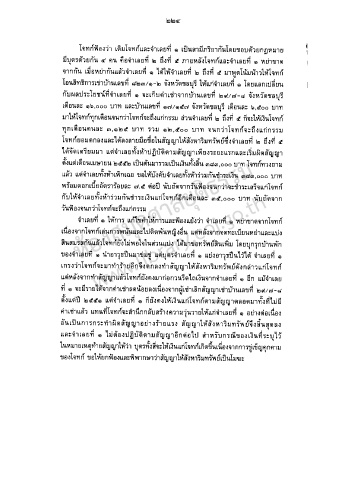 ๒๒๔
โจทก์ฟ้องว่า เดิมโจทก์และจำเลยที่ ๑ เป็นสามีภริยากันโดยชอบด้วยกฎหมาย
มีบุตรด้วยกัน ๔ คน คือจำเลยที่ ๒ ถึงที่ ๕ ภายหลังโจทก์และจำเลยที่ ๑ หย่าขาด
จากกัน เมื่อหย่ากันแล้วจำเลยที่ ๑ ได้ให้จำเลยที่ ๒ ถึงที่ ๕ มาพูดโน้มน้าวให้โจทก์
โอนสิทธิการเช่าบ้านเลขที่ จังหวัดชลบุรี ให้แก่จำเลยที่ ๑ โดยแลกเปลี่ยน
กับผลประโยชน์ที่จำเลยที่ ๑ จะเก็บค่าเช่าจากบ้านเลขที่ จังหวัดชลบุรี
เดือนละ ๑๖,๐๐๐ บาท และบ้านเลขที่ จังหวัดชลบุรี เดือนละ ๖,๕๐๐ บาท
มาให้โจทก์ทุกเดือนจนกว่าโจทก์จะถึงแก่กรรม ส่วนจำเลยที่ ๒ ถึงที่ ๕ ก็จะให้เงินโจทก์
ทุกเดือนคนละ ๓,๑๒๕ บาท รวม ๑๒,๕๐๐ บาท จนกว่าโจทก์จะถึงแก่กรรม
โจทก์ยอมตกลงและได้ลงลายมือชื่อในสัญญาให้สังหาริมทรัพย์ซึ่งจำเลยที่ ๒ ถึงที่ ๕
ได้จัดเตรียมมา แต่จำเลยทั้งห้าปฏิบัติตามสัญญาเพียงระยะแรกและเริ่มผิดสัญญา
ตั้งแต่เดือนเมษายน ๒๕๕๒ เป็นต้นมารวมเป็นเงินทั้งสิ้น บาท โจทก์ทวงถาม
แล้ว แต่จำเลยทั้งห้าเพิกเฉย ขอให้บังคับจำเลยทั้งห้าร่วมกันชำระเงิน บาท
พร้อมดอกเบี้ยอัตราร้อยละ ๗.๕ ต่อปี นับถัดจากวันฟ้องจนกว่าจะชำระเสร็จแก่โจทก์
กับให้จำเลยทั้งห้าร่วมกันชำระเงินแก่โจทก์อีกเดือนละ ๓๕,๐๐๐ บาท นับถัดจาก
วันฟ้องจนกว่าโจทก์จะถึงแก่กรรม
จำเลยที่ ๑ ให้การ แก้ไขคำให้การและฟ้องแย้งว่า จำเลยที่ ๑ หย่าขาดจากโจทก์
เนื่องจากโจทก์เล่นการพนันและไปติดพันหญิงอื่น แต่หลังจากจดทะเบียนหย่าและแบ่ง
สินสมรสกันแล้วโจทก์ยังไม่พอใจในส่วนแบ่ง ได้มาขอทรัพย์สินเพิ่ม โดยบุกรุกบ้านพัก
ของจำเลยที่ ๑ นำอาวุธปืนมาข่มขู่ แต่บุตรจำเลยที่ ๑ แย่งอาวุธปืนไว้ได้ จำเลยที่ ๑
เกรงว่าโจทก์จะมาทำร้ายอีกจึงตกลงทำสัญญาให้สังหาริมทรัพย์ดังกล่าวแก่โจทก์
แต่หลังจากทำสัญญาแล้วโจทก์ก็ยังคงมาก่อกวนรีดไถเงินจากจำเลยที่ ๑ อีก แม้จำเลย
ที่ ๑ จะมีรายได้จากค่าเช่าลดน้อยลงเนื่องจากผู้เช่าเลิกสัญญาเช่าบ้านเลขที่
ตั้งแต่ปี ๒๕๕๑ แต่จำเลยที่ ๑ ก็ยังคงให้เงินแก่โจทก์ตามสัญญาตลอดมาทั้งที่ไม่มี
ค่าเช่าแล้ว แทนที่โจทก์จะสำนึกกลับสร้างความวุ่นวายให้แก่จำเลยที่ ๑ อย่างต่อเนื่อง
อันเป็นการกระทำผิดสัญญาอย่างร้ายแรง สัญญาให้สังหาริมทรัพย์จึงสิ้นสุดลง
และจำเลยที่ ๑ ไม่ต้องปฏิบัติตามสัญญาอีกต่อไป สำหรับกรณีของเงินที่ระบุไว้
ในหมายเหตุท้ายสัญญาให้ว่า บุตรทั้งสี่จะให้เงินแก่โจทก์เกิดขึ้นเนื่องจากการขู่เข็ญคุกคาม
ของโจทก์ ขอให้ยกฟ้องและพิพากษาว่าสัญญาให้สังหาริมทรัพย์เป็นโมฆะ